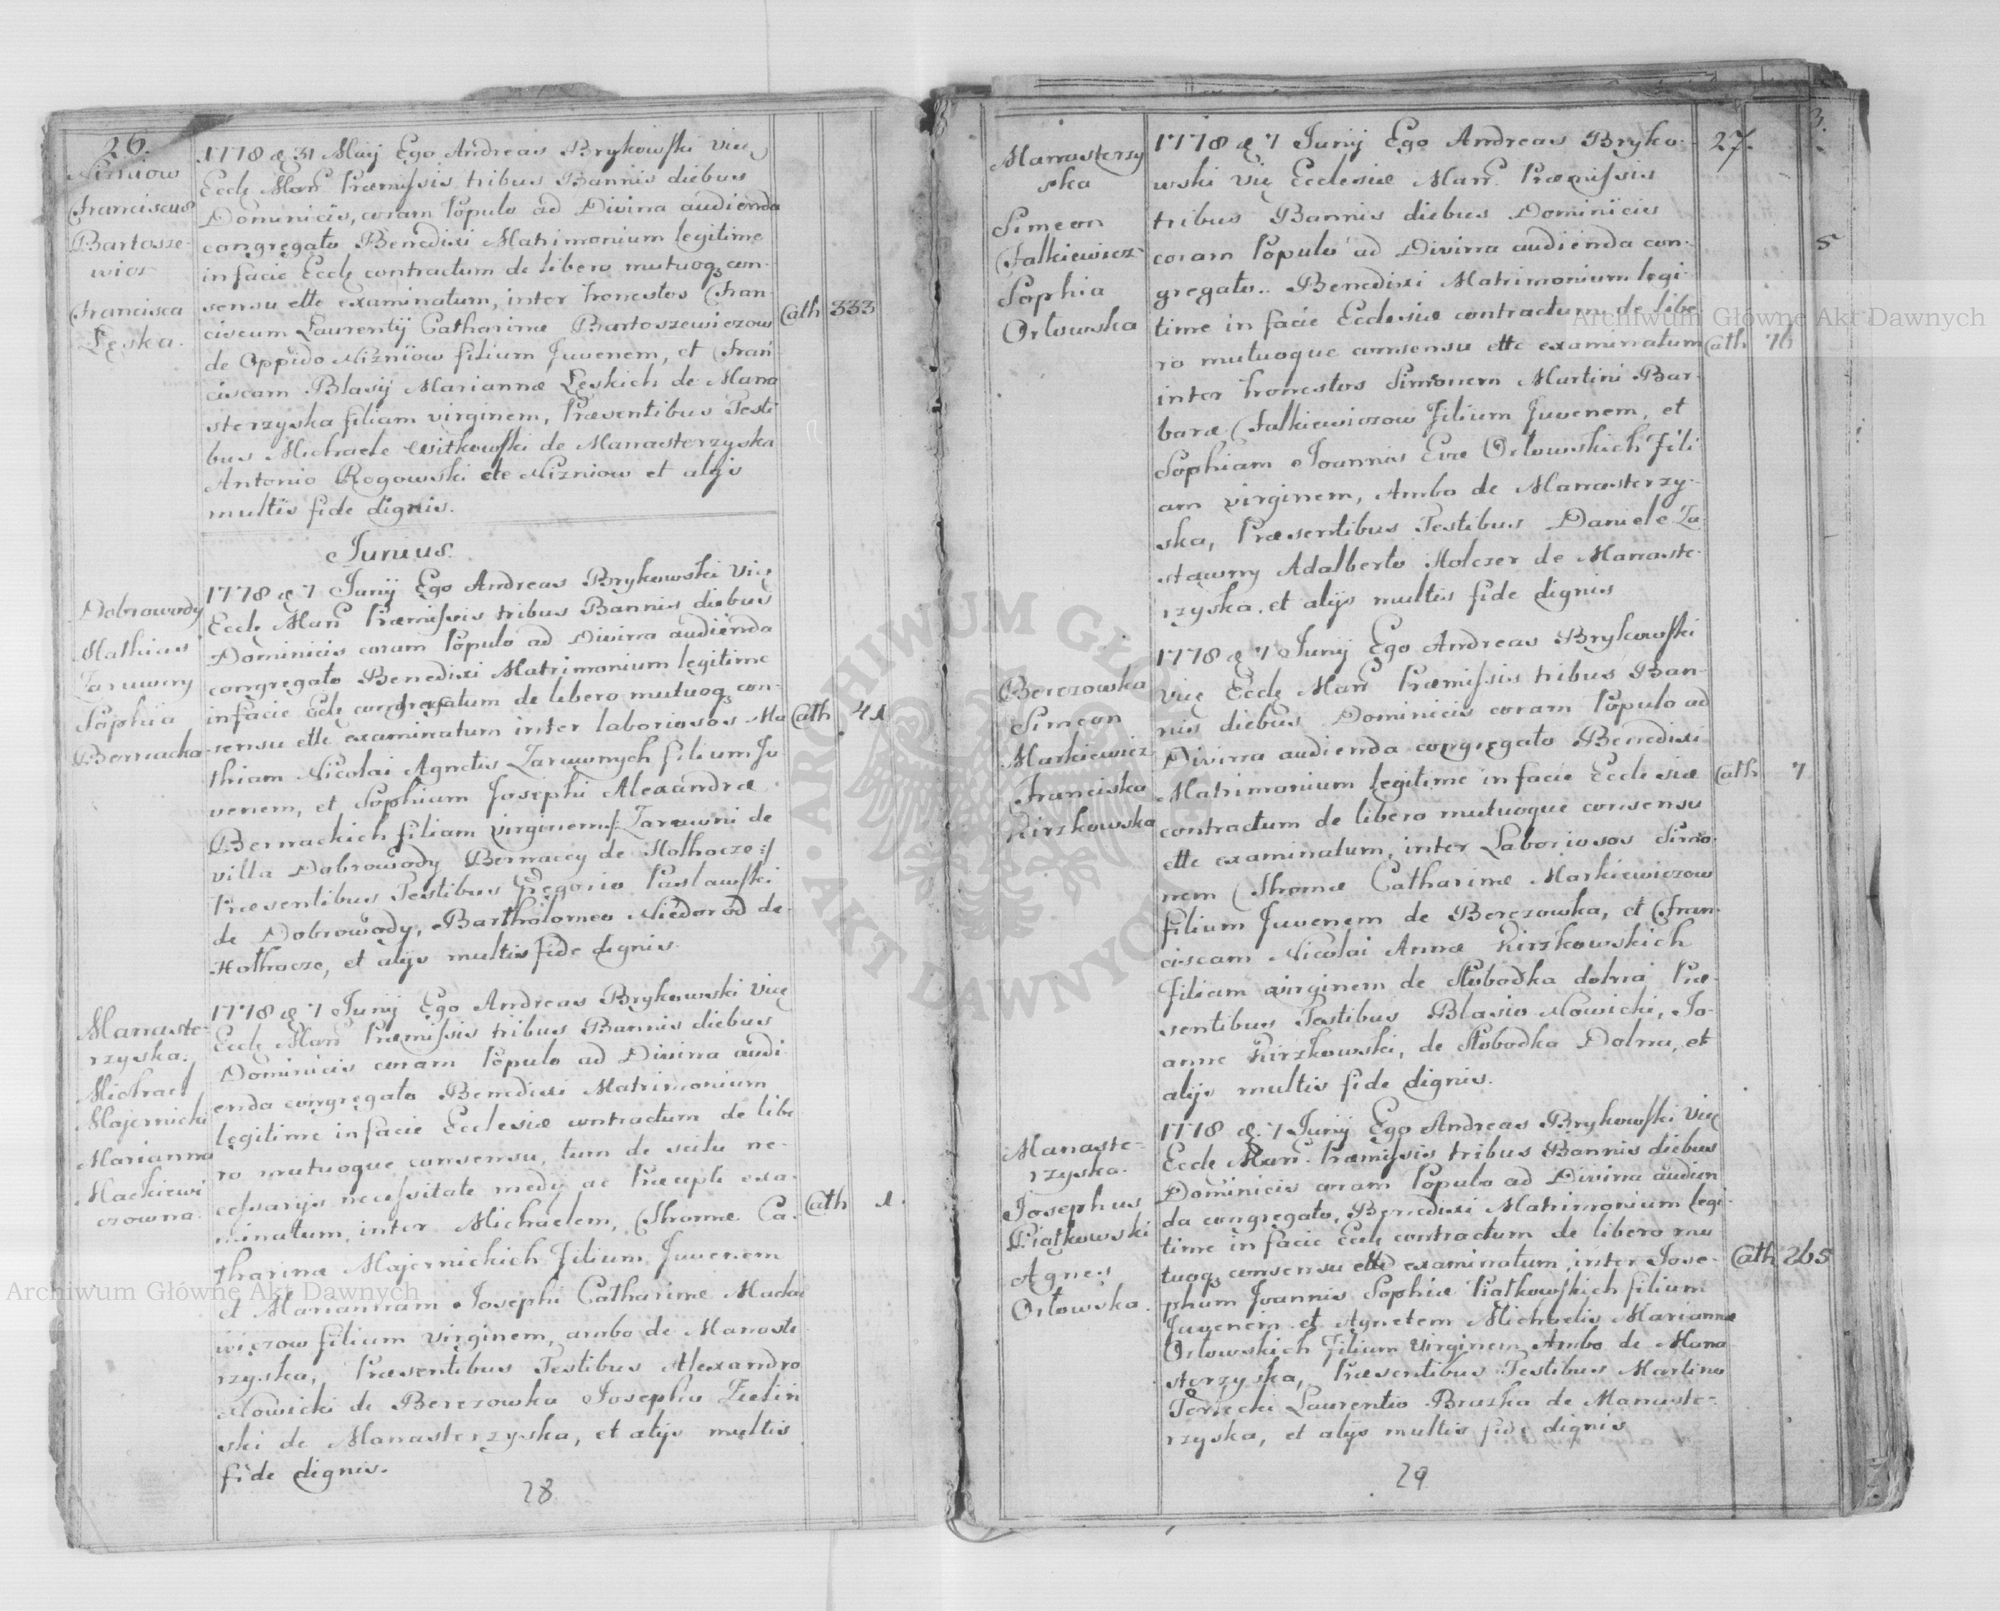 26.
Nizniow
Franciscus
Bartosze-
wicz
Francisca
Lęska.
1778 d 31 Maij Ego Andreas Brykowski Vicę
Eccle Man Præmissis tribus Bannis diebus
Dominicis, coram Populo ad Divina audienda
congregato Benedixi Matrimonium legitime
in facie Eccle contractum de libero mutuoq con-
sensu ette examinatum, inter honestos Fran-
ciscum Laurentij Catharinæ Bartoszewiczow
de Oppido Nizniow filium Juvenem, et Fran
ciscam Blasij Mariannæ Leskich de Mana
sterzyska filiam virginem, Præsentibus Testi
bus Michaele Witkowski de Manasterzyska
Antonio Rogowski de Nizniow et alijs
multis fide dignis.
Cath 333
Junius.
Dobrowody
Mathias
Zaruwny
Sophia
Bernacka
1778 d 7 Junij Ego Andreas Brykowski Vicę
Eccle Man Præmissis tribus Bannis diebus
Dominicis coram Populo ad Divina audienda
congregato Benedixi Matrimonium legitime
in facie Eccle contractum de libero mutuoq con-
sensu ette examinatum inter laboriosos Ma
thiam Nicolai Agnetis Zaruwnych filium Ju
venem, et Sophiam Josephi Alexandræ
Bernackich filiam virginem Zaruwni de
villa Dobrowody Bernaccy de Holhocze
Præsentibus Testibus Gregorio Puslawski
de Dobrowody, Bartholomeo Niedorod de
Holhocze, et alijs multis fide dignis.
Cath 41
Manaste-
rzyska.
Michael
Majernicki
Marianna
Mackiewi
czowna
1778 d 7 Junij Ego Andreas Brykowski Vicę
Eccle Man Præmissis tribus Bannis diebus
Dominicis coram Populo ad Divina audi
enda congregato Benedixi Matrimonium
legitime in facie Ecclesiæ contractum de libe
ro mutuoque consensu, tum de scitu ne-
cessarijs necessitate medij ac Præcepti exa-
minatum, inter Michaelem, Thomæ Ca-
tharinæ Majernickich Filium Juvenem
et Mariannam Josephi Catharinæ Mackie
wiczow filium virginem, ambo de Manaste
rzyska, Præsentibus Testibus Alexandro
Nowicki de Berezowka Josepho Zielin
ski de Manasterzyska, et alijs multis
fide dignis.
Cath 1.
28
27.
3.
5
Manasterzy
ska
Simeon
Falkiewicz
Sophia
Orlowska
1778 d 7 Junij Ego Andreas Bryko-
wski Vię Ecclesiæ Man. Præmissis
tribus Bannis diebus Dominicis
coram Populo ad Divina audienda con-
gregato. Benedixi Matrimonium legi-
time in facie Ecclesiæ contractum de libe
ro mutuoque consensu ette examinatum
inter honestos Simonem Martini Bar-
baræ Falkiewiczow Filium Juvenem, et
Sophiam Joannis Evæ Orlowskich Fili
am virginem, Ambo de Manasterzy-
ska, Præsentibus Testibus Daniele Za-
stawny Adalberto Holczer de Manaste-
rzyska, et alijs multis fide dignis
Cath 76
Berezowka
Simeon
Markiewicz
Franciska
Kirzkowska
1778 d 7 Junij Ego Andreas Brykowski
Vicę Eccle Man Præmissis tribus Ban-
nis diebus Dominicis coram Populo ad
Divina audienda congregato Benedixi
Matrimonium legitime in facie Ecclesiæ
contractum de libero mutuoque consensu
ette examinatum, inter Laboriosos Simo-
nem Thomæ Catharinæ Markiewiczow
filium Juvenem de Berezowka, et Fran-
ciscam Nicolai Annæ Kirzkowskich
Filiam virginem de Slobodka dolna Præ-
sentibus Testibus Blasio Nowicki, Jo-
anne Kirzkowski, de Slobodka Dolna, et
alijs multis fide dignis.
Cath 7
Manaste-
rzyska.
Josephus
Piątkowski
Agnes
Orłowska.
1778 d. 7 Junij Ego Andreas Brykowski Vicę
Eccle Man. Præmissis tribus Bannis diebus
Dominicis coram Populo ad Divina audien
da congregato, Benedixi Matrimonium legi-
time in facie Eccle contractum de libero mu
tuoq consensu ette examinatum, inter Jose-
phum Joannis Sophiæ Piatkowskich filium
Juvenem et Agnetem Michaelis Mariannæ
Orlowskich Filium Virginem Ambo de Mana
sterzyska, Præsentibus Testibus Martino
Ternecki Laurentio Bruzka de Manaste-
rzyska, et alijs multis fide dignis
Cath 265
29
Archiwum Główne Akt Dawnych
Archiwum Główne Akt Dawnych
ARCHIWUM GŁÓWNE AKT DAWNYCH